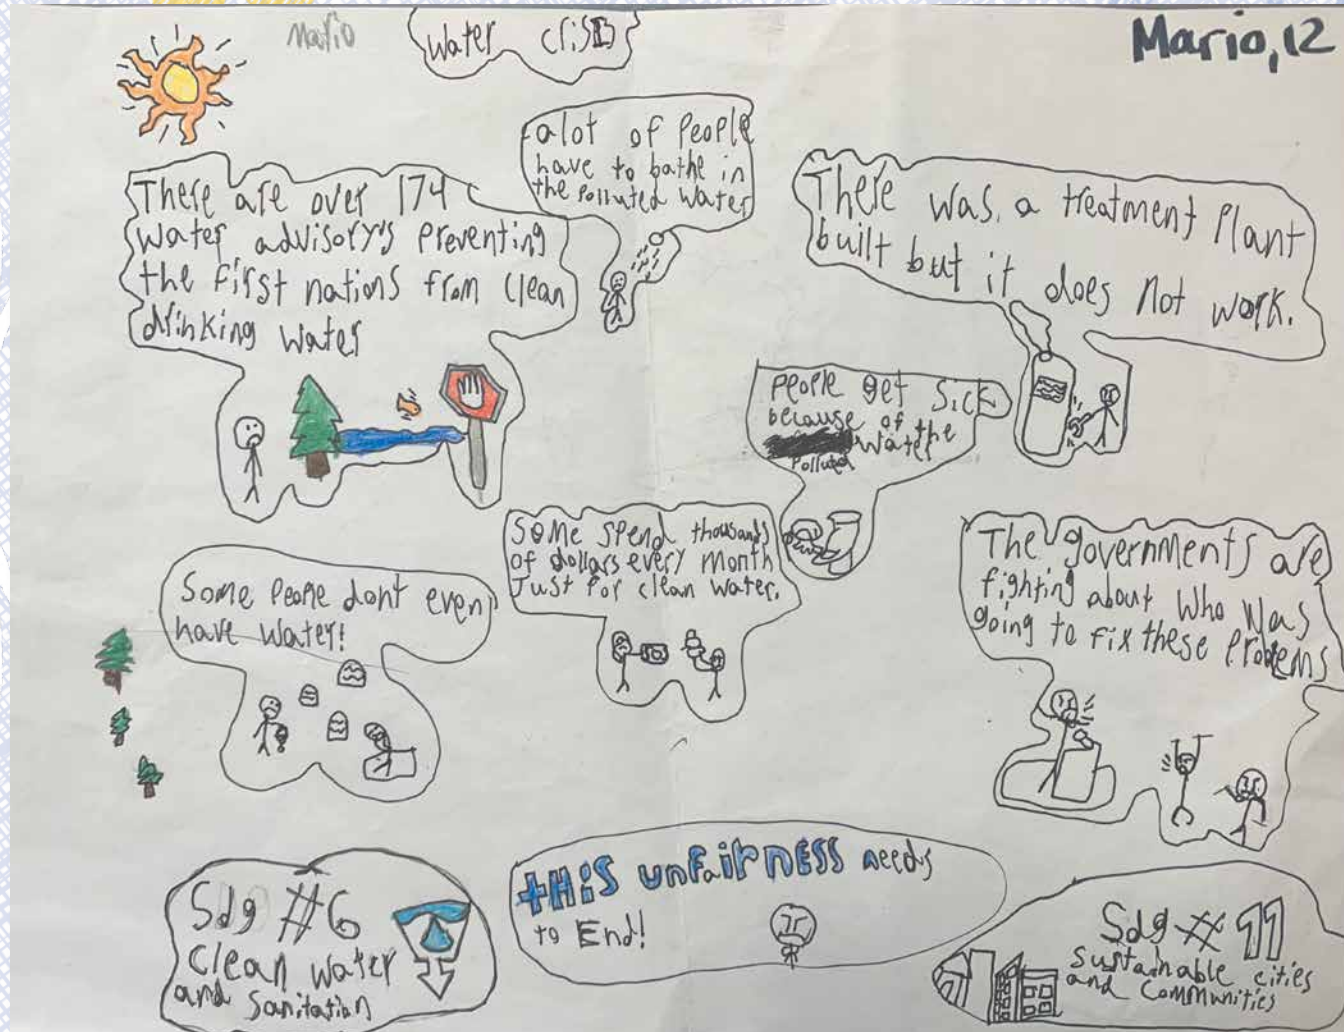 Mario
Water crisis
Mario, 12
There are over 174
water advisory's preventing
the first nations from clean
drinking water
alot of people
have to bathe in
the polluted water
There was a treatment plant
built but it does not work.
people get sick
because of the
water
polluted
Some spend thousands
of dollars every month
Just for clean water.
Some people dont even
have water!
The governments are
fighting about who was
going to fix these problems
Sdg #6
clean water
and sanitation
tHiS unfairNESS needs
to End!
Sdg # 11
sustainable cities
and communities